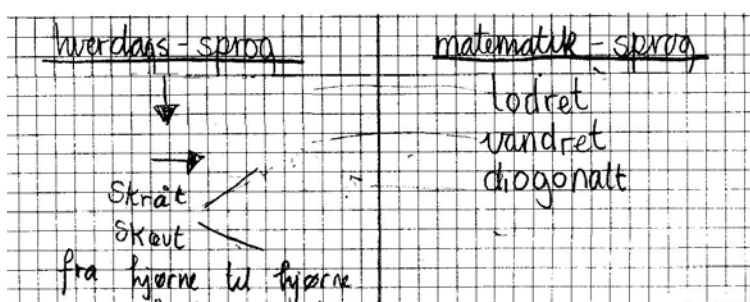 hverdags - sprog
matematik - sprog
lodret
vandret
diogonalt
Skråt
Skævt
fra hjørne til hjørne